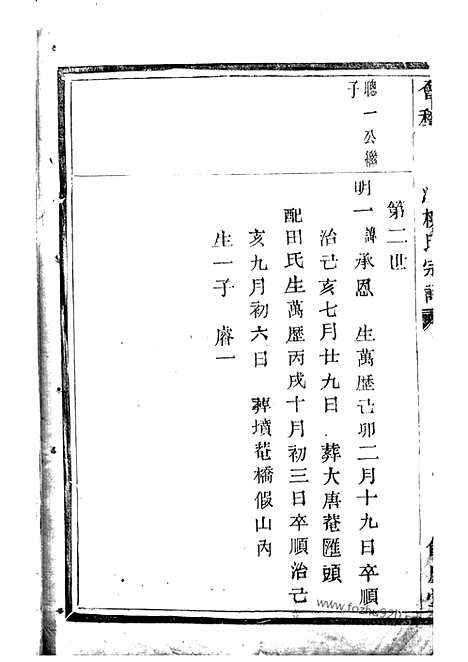 會稽
氏宗譜
第二世
聰一公繼
子
明一諱承恩 生萬歷己卯二月十九日卒順
治己亥七月廿九日 葬大唐菴匯頭
配田氏生萬歷丙戌十月初三日卒順治己
亥九月初六日 葬墳菴橋假山內
生一子 睿一